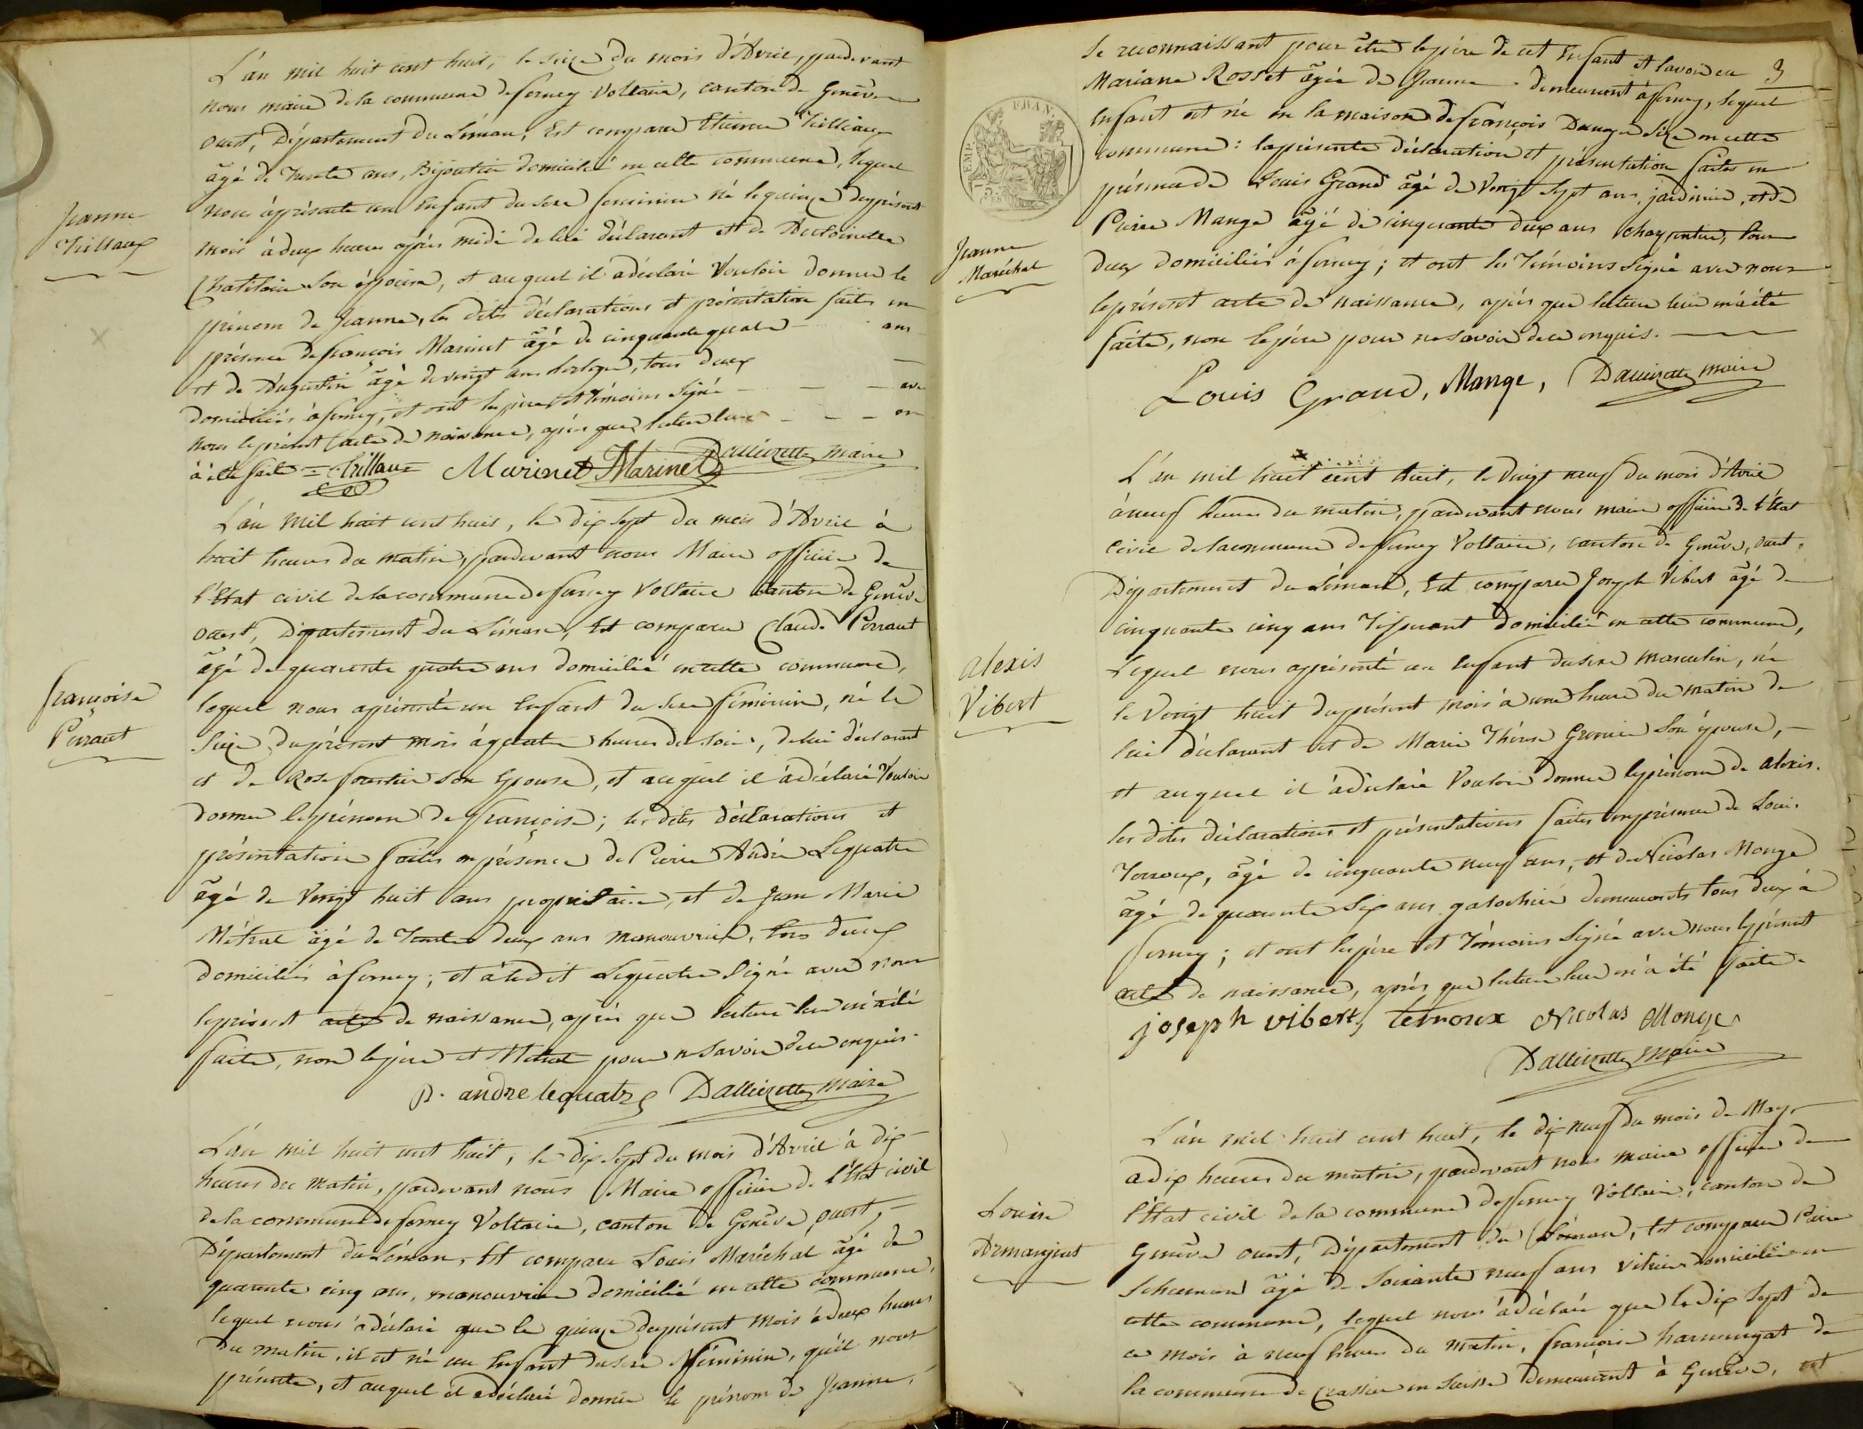 L'an mil huit cent huit, le seize du mois d'Avril, pardevant
nous maire de la commune de ferney Voltaire, canton de Genêve
ouest, Département du Léman, Est comparu Etienne Trillaux
âgé de trente ans, Bijoutier domicilié en cette commune, lequel
nous a présenté un Enfant du sexe féminin né le quinze du présent
Jeanne
Trillaux
mois à deux heures après midi de lui déclarant et de
son épouse, et auquel il a déclaré Vouloir donner le
prénom de Jeanne, les dites déclarations et présentation faites en
présence de françois Marinet âgé de cinquante quatre ans
et de Augustin âgé de vingt ans horloger, tous deux
domiciliés à ferney, et ont les père et témoins signé avec
nous le présent acte de naissance, après que lecture leur en
a été faite = Trillaux Marinet Marinet Dallizette, maire
L'an mil huit cent huit, le dix sept du mois d'Avril à
huit heures du matin, pardevant nous Maire officier de
l'Etat civil de la commune de ferney Voltaire canton de Genêve
ouest, Département du Léman, Est comparu Claude Perraut
âgé de quarante quatre ans domicilié en cette commune,
françoise
Perraut
lequel nous a présenté un Enfant du sexe féminin, né le
Seize du présent mois à quatre heures du soir, de lui déclarant
et de Rose son Epouse, et auquel il a déclaré Vouloir
donner le prénom de françoise; les dites déclarations et
présentation faites en présence de Pierre André Lequatre
âgé de Vingt huit ans propriétaire, et de Jean Marie
Métral âgé de Trente deux ans manouvrier, tous deux
domiciliés à ferney; et a ledit Lequatre Signé avec nous
le présent acte de naissance, après que lecture leur en a été
faite, non le père et Métral pour ne savoir de ce enquis.
p. andre lequatre Dallizette, maire
L'an mil huit cent huit, le dix sept du mois d'Avril à dix
heures du matin, pardevant nous Maire officier de l'Etat civil
de la commune de ferney Voltaire, canton de Genêve, ouest,
Département du Léman, Est comparu Louis Maréchal âgé de
quarante cinq ans, manouvrier domicilié en cette commune,
lequel nous a déclaré que le quinze du présent mois à deux heures
du matin, il est né un Enfant du sexe féminin, qu'il nous
présente, et auquel il a déclaré donner le prénom de Jeanne,
Se reconnaissant pour être le père de cet Enfant et l'avoir eu 3
Mariane Rosset âgée de demeurant à ferney, lequel
Enfant est né en la maison de françois Size en cette
commune: la présente déclaration et présentation faites en
présence de Louis Grand âgé de Vingt sept ans, jardinier, et de
Pierre Mange âgé de cinquante deux ans charpentier, tous
Jeanne
Maréchal
deux domiciliés à ferney; et ont les témoins Signé avec nous
le présent acte de naissance, après que lecture leur en a été
faite, non le père pour ne savoir de ce enquis.
Louis Grand, Mange, Dallizette, maire
L'an mil huit cent huit, le vingt neuf du mois d'Avril
à neuf heures du matin, pardevant nous maire officier de l'état
civil de la commune de ferney Voltaire, canton de Genêve, ouest,
Département du Léman, Est comparu Joseph Vibert âgé de
cinquante cinq ans Tisserant domicilié en cette commune,
alexis
Vibert
Lequel nous a présenté un Enfant du sexe masculin, né
le Vingt huit du présent mois à une heure du matin de
lui déclarant et de Marie Thérèse son épouse,
et auquel il a déclaré Vouloir donner le prénom de alexis.
les dites déclarations et présentations faites en présence de Louis
Terroux, âgé de cinquante neuf ans, et de Nicolas Monge
âgé de quarante Six ans galochier demeurants tous deux à
ferney; et ont les père et Témoins Signé avec nous le présent
acte de naissance, après que lecture leur en a été faite.
joseph vibert, terroux Nicolas Monge
Dallizette, maire
L'an mil huit cent huit, le dix neuf du mois de May,
à dix heures du matin, pardevant nous maire officier de
Louise
l'Etat civil de la commune de ferney Voltaire, canton de
Genêve ouest, Département du Léman, Est comparu Pierre
âgé de Soixante neuf ans vitrier domicilié en
cette commune, lequel nous a déclaré que le dix Sept de
ce mois à neuf heures du matin, françoise de
la commune de Crassier en Suisse demeurant à Genêve, est